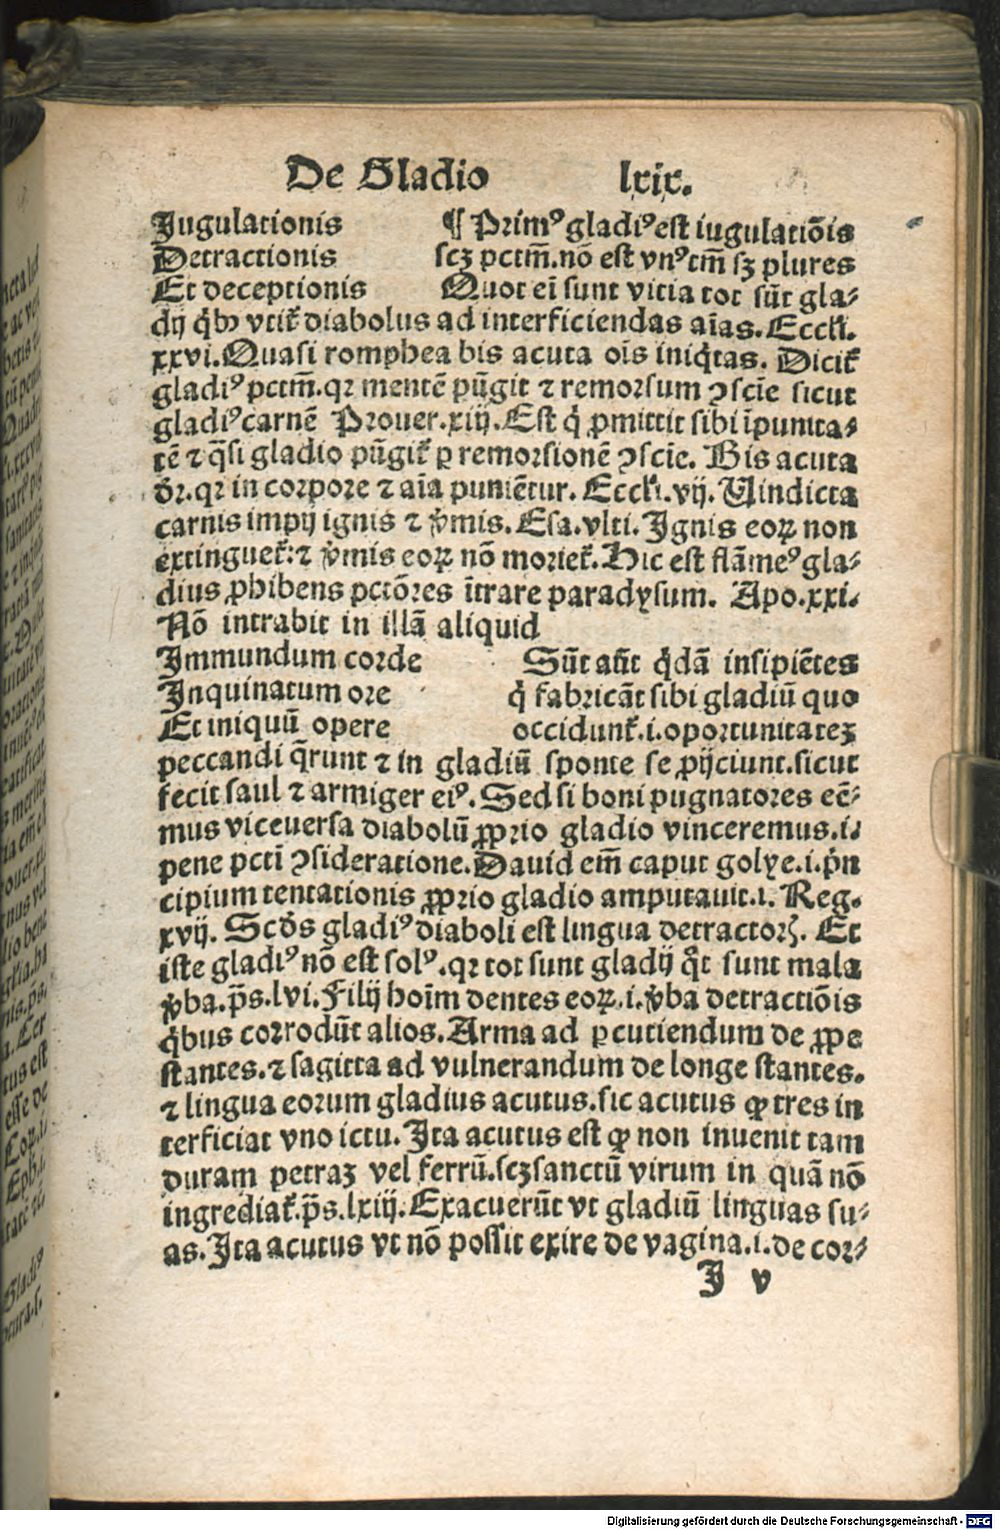 De Gladio lxix.
Jugulationis ¶ Primꝰ gladiꝰ est iugulatiōis
Detractionis scꝫ pctm̄. nō est vnꝰ tm̄ sꝫ plures
Et deceptionis Quot ei̅ sunt vitia tot su̅t gla⸗
dij q̇bꝰ vtit᷑ diabolus ad interficiendas aīas. Eccłi.
xxvi. Quasi romphea bis acuta oīs iniq̇tas. Dicit᷑
gladiꝰ pctm̄. qꝛ mentē pūgit ⁊ remorsum ꝯscīe sicut
gladiꝰ carnē Prouer. xiij. Est q̇ ꝓmittit sibi īpunita⸗
tē ⁊ q̄si gladio pūgit᷑ ꝑ remorsionē ꝯscīe. Bis acuta
dr̄. qꝛ in corpore ⁊ aīa puniētur. Eccłi. vij. Uindicta
carnis impij ignis ⁊ v̓mis. Esa. vlti. Ignis eoꝝ non
extinguet᷑: ⁊ v̓mis eoꝝ nō moriet᷑. Hic est flāmeꝰ gla⸗
dius ꝓhibens pctōres ītrare paradysum. Apo. xxi.
Nō intrabit in illā aliquid
Immundum corde Sūt aūt q̇dā insipiētes
Inquinatum ore q̇ fabricāt sibi gladiū quo
Et iniquū opere occidunt᷑. i. oportunitateꝫ
peccandi q̄runt ⁊ in gladiū sponte se ꝓijciunt. sicut
fecit saul ⁊ armiger eiꝰ. Sed si boni pugnatores eē⸗
mus viceuersa diabolū ꝓprio gladio vinceremus. i.
pene pcti ꝯsideratione. Dauid em̄ caput golye. i. pn̓
cipium tentationis ꝓprio gladio amputauit. i. Reg.
xvij. Scd̓s gladiꝰ diaboli est lingua detractorꝝ. Et
iste gladiꝰ nō est solꝰ. qꝛ tot sunt gladij qͦt sunt mala
v̓ba. ps̄. lvi. Filij hoīm dentes eoꝝ. i. v̓ba detractiōis
q̇bus corrodūt alios. Arma ad ꝑcutiendum de ꝓpe
stantes. ⁊ sagitta ad vulnerandum de longe stantes.
⁊ lingua eorum gladius acutus. sic acutus ꝙ tres in
terficiat vno ictu. Ita acutus est ꝙ non inuenit tam
duram petraꝫ vel ferrū. scꝫ sanctū virum in quā nō
ingrediat᷑. ps̄. lxiij. Exacuerūt vt gladiū linguas su⸗
as. Ita acutus vt nō possit exire de vagina. i. de cor⸗
J v
Digitalisierung gefördert durch die Deutsche Forschungsgemeinschaft - DFG